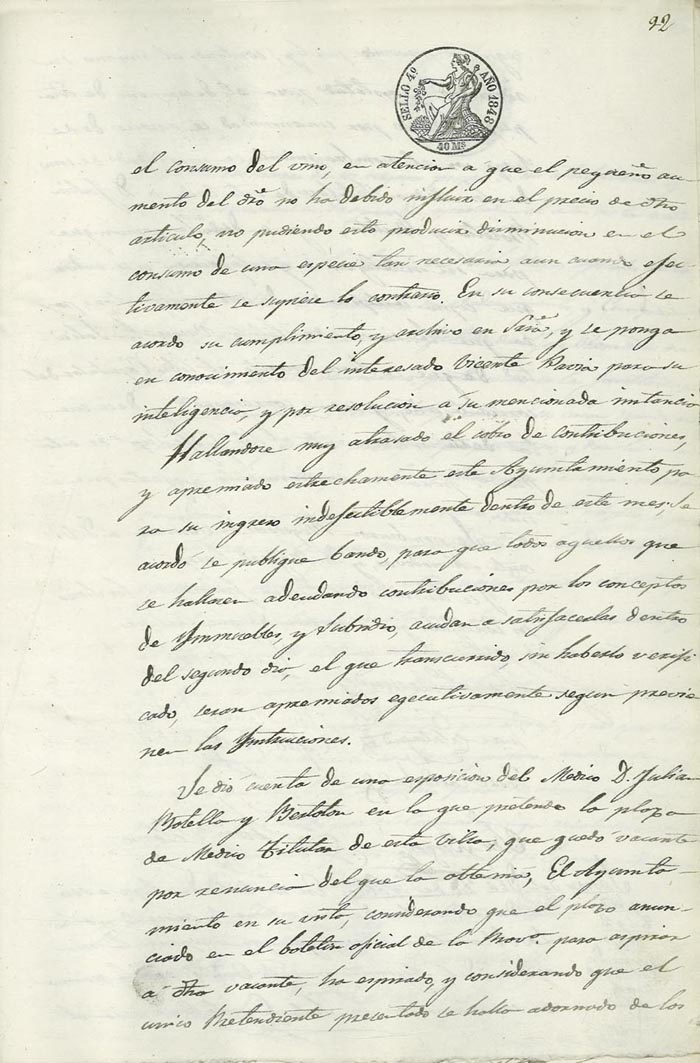 92
SELLO 4º AÑO 1848
40 Ms
el consumo del vino, en atencion a que el pequeño au-
mento del dro no ha debido influir en el precio de dho
articulo, no pudiendo esto producir disminucion en el
consumo de una especie tan necesaria aun cuando efec-
tivamente se supiese lo contrario. En su consecuencia se
acordo su cumplimiento, y archivo en Sria, y se ponga
en conocimiento del interesado Vicente Pavia para su
inteligencia, y por resolucion a su mencionada instancia
Hallandose muy atrasado el cobro de contribuciones,
y apremiado estrechamente este Ayuntamiento pa-
ra su ingreso indefectiblemente dentro de este mes, se
acordó se publique bando, para que todos aquellos que
se hallasen adeudando contribuciones por los conceptos
de Ynmuebles, y Subsidio, acudan a satisfacerlas dentro
del segundo dia, el que transcurrido, sin haberlo verifi-
cado, seran apremiados egecutivamente segun previe-
nen las Ynstruciones.
Se dió cuenta de una esposicion del Medico D. Julian
Botella y Bertoton en la que pretende la plaza
de Medico Titular de esta Villa, que quedó vacante
por renuncia del que la obtenia, El Ayunta-
miento en su vista, considerando que el plazo anun-
ciado en el boletin oficial de la Prova. para aspirar
a dha vacante, ha espirado, y considerando que el
unico Pretendiente presentado se halla adornado de los